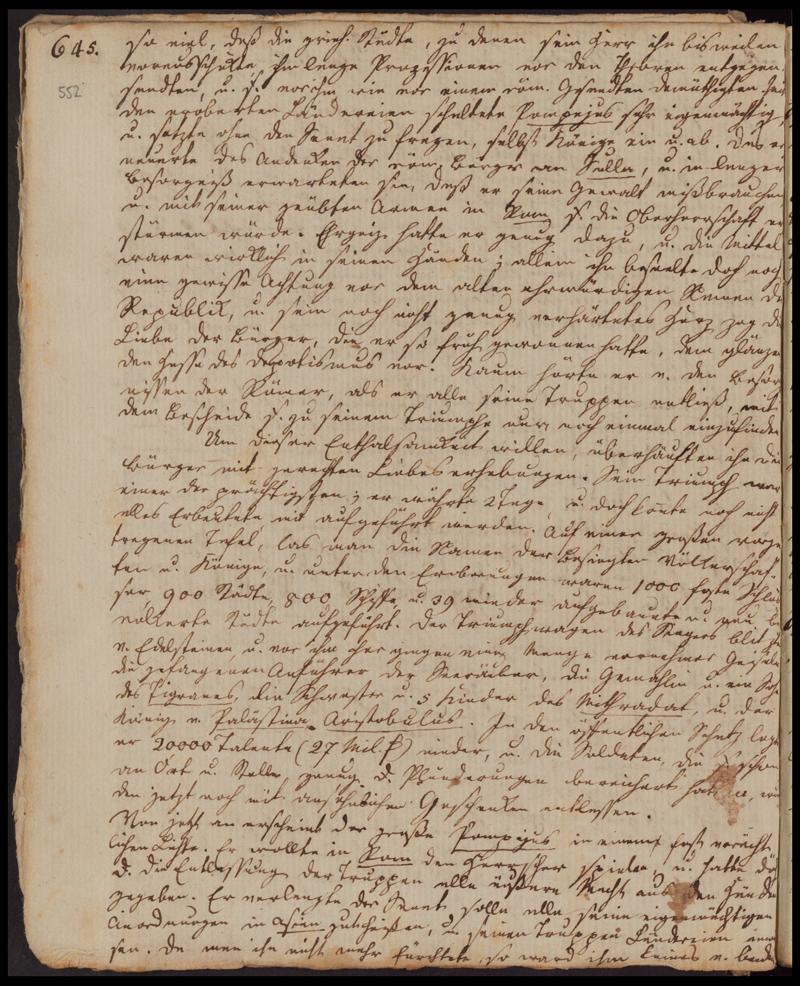 645. so viel, daß die griech. Städte, zu denen sein Herr ihn bisweilen
552 vorausschickte, ihm lange Prozessionen vor den Thoren entgegen
sandten, u. s. vor ihm wie vor einem röm. Gesandten demüthigten
den eroberten Ländereien schaltete Pompejus sehr eigenmächtig,
u. setzte ohne den Senat zu fragen, selbst Könige ein u. ab. Das er
neuerte das Andenken der röm. Bürger an Sulla, u. in banger
Besorgniß erwarteten sie, daß er seine Gewalt mißbrauchen
u. mit seiner geübten Armee in Rom s. die Oberherrschaft er
stürmen würde. Ehrgeiz hatte er genug dazu, u. die Mittel
waren wirklich in seinen Händen; allein ihn beseelte doch noch
eine gewisse Achtung vor dem alten ehrwürdigen Namen de
Republik, u. sein noch nicht genug verhärtetes Herz zog di
Liebe der Bürger, die er so früh gewonnen hatte, dem glänze
den Hasse des Depotismus vor. Kaum hörte er v. den Besor
nissen der Römer, als er alle seine Truppen entließ, mit
dem Bescheide s. zu seinem Triumphe nur noch einmal einzufinden
Um dieser Enthaltsamkeit willen, überhäuften ihn die
Bürger mit gerechten Liebeserhebungen. Sein Triumph war
einer der prächtigsten; er währte 2 Tage, u. doch konte noch nicht
alles Erbeutete mit aufgeführt werden. Auf einer großen vorge
tragenen Tafel, las man die Namen der besiegten Völkerschaf-
ten u. Könige, u. unter den Eroberungen waren 1000 feste Schlös
ser 900 Städte, 800 Schiffe u. 39 wieder aufgebaute u. neu be
völkerte Städte aufgeführt. Der Triumphwagen des Siegers blitzte
v. Edelsteinen, u. vor ihm her gingen eine Menge vornehmer Geiseln
die gefangenen Anführer der Seeräuber, die Gemahlin u. ein Soh
des Tigranes, die Schwester u. 5 Kinder des Mithradat, u. der
König v. Palästina Aristobulus. In den öffentlichen Schatz legte
er 20000 Talente (27 Mil. ) nieder, u. die Soldaten, die schon
an Ort u. Stelle, genug d. Plünderungen bereichert hatten, wur
den jetzt noch mit ansehnlichen Geschenken entlassen.
Von jetzt an erscheint der große Pompejus in einem fast verächt
lichen Lichte. Er wollte in Rom den Herrscher spielen, u. hatte do
d. die Entlassung der Truppen alle äußere Macht aus den Händen
gegeben. Er verlangte der Senat solle alle seine eigenmächtigen
Anordnungen in Asien gutheißen, u. seinen Truppen Ländereien anw
sen. Da man ihn nicht mehr fürchtete, so ward ihm keines v. beide